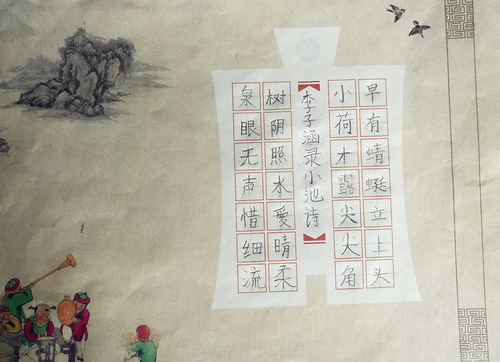 泉眼无声惜细流
树阴照水愛晴柔
李子涵录小池诗
小荷才露尖尖角
早有蜻蜓立上头